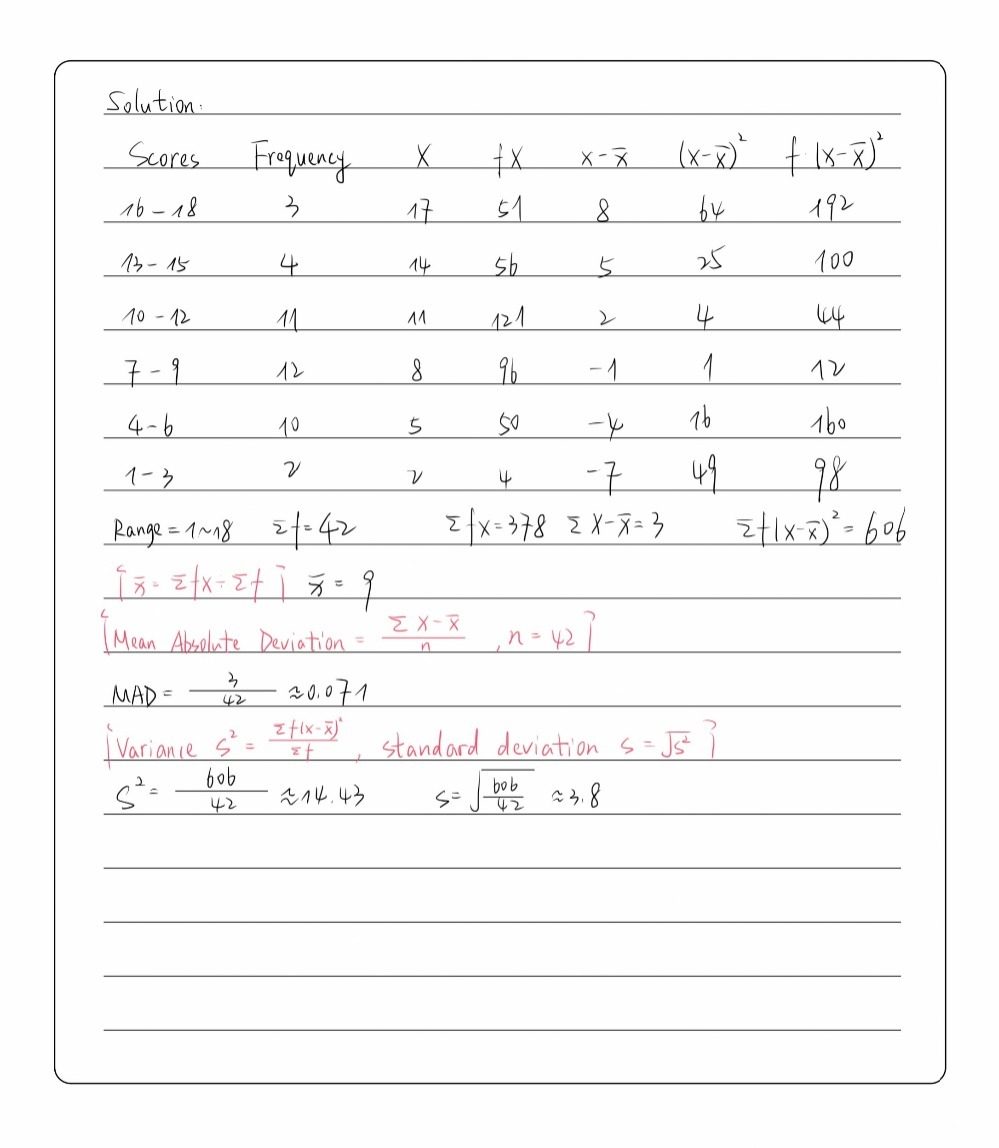 Solution:
Scores Frequency X fX x-x̄ (x-x̄)² f·(x-x̄)²
16-18 3 17 51 8 64 192
13-15 4 14 56 5 25 100
10-12 11 11 121 2 4 44
7-9 12 8 96 -1 1 12
4-6 10 5 50 -4 16 160
1-3 2 2 4 -7 49 98
Range=1~18 Σf=42 Σfx=378 Σx-x̄=3 Σf(x-x̄)²=606
「x̄=Σfx÷Σf」 x̄=9
「Mean Absolute Deviation = Σx-x̄/n , n=42」
MAD= 3/42 ≈0.071
「Variance S²= Σf(x-x̄)²/Σf , standard deviation s=√s²」
S²= 606/42 ≈14.43 s=√606/42 ≈3.8